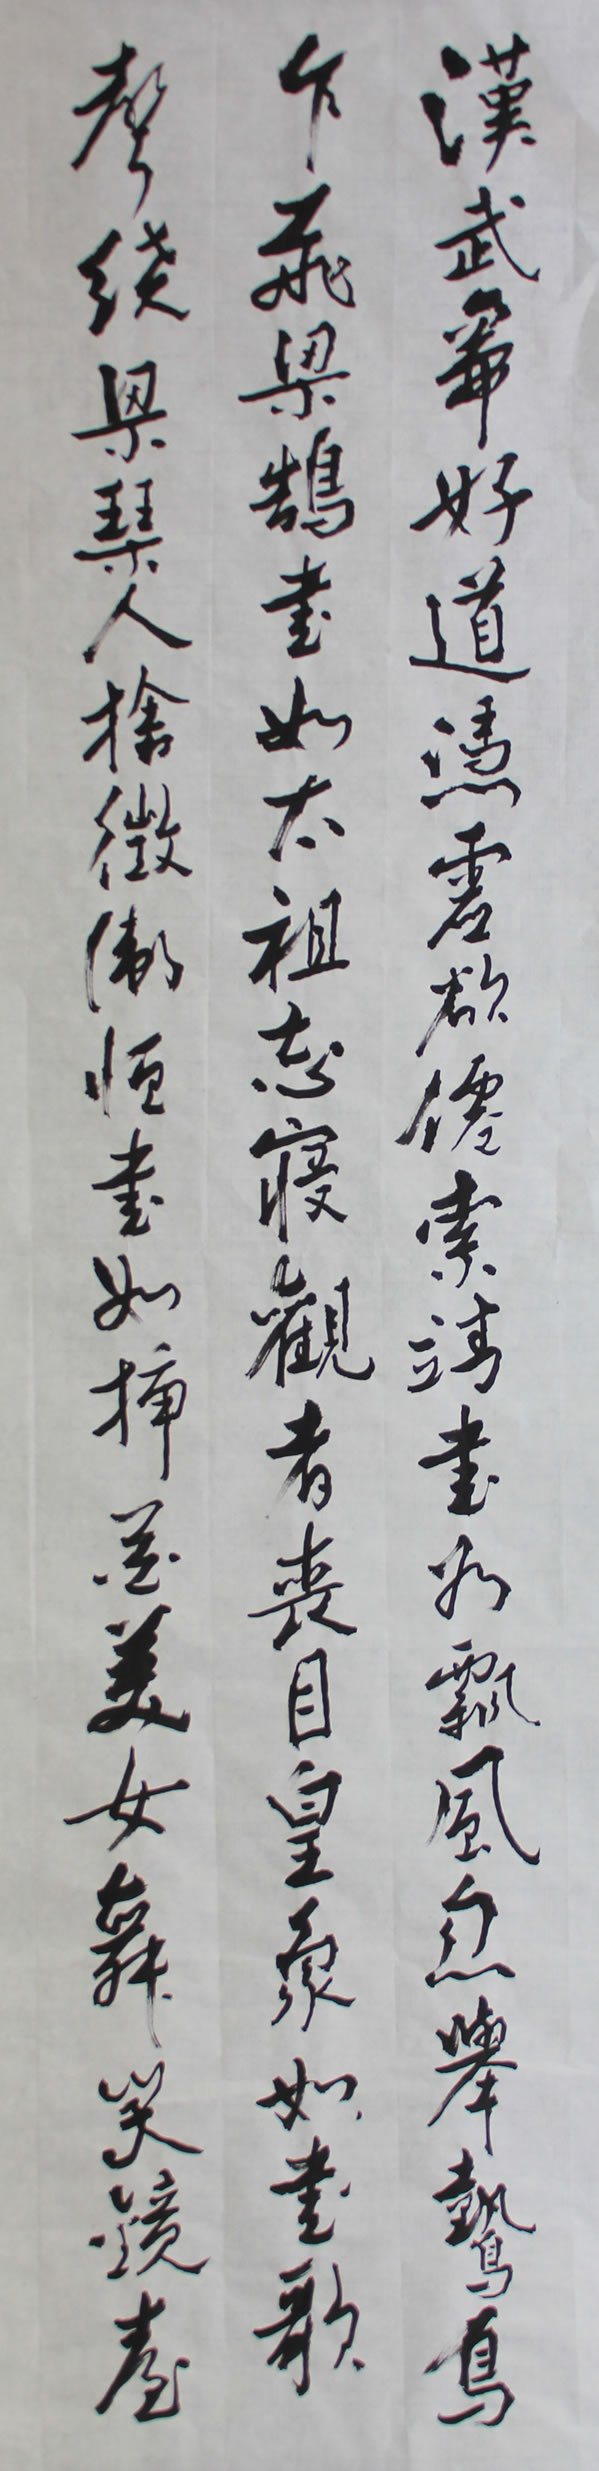 漢武帝好道憑虛欲僊索靖書如飄風忽舉鷙鳥
乍飛梁鵠書如太祖忘寢觀者喪目皇象如書歌
聲繞梁琴人捨徽衛恒書如插花美女舞笑鏡臺